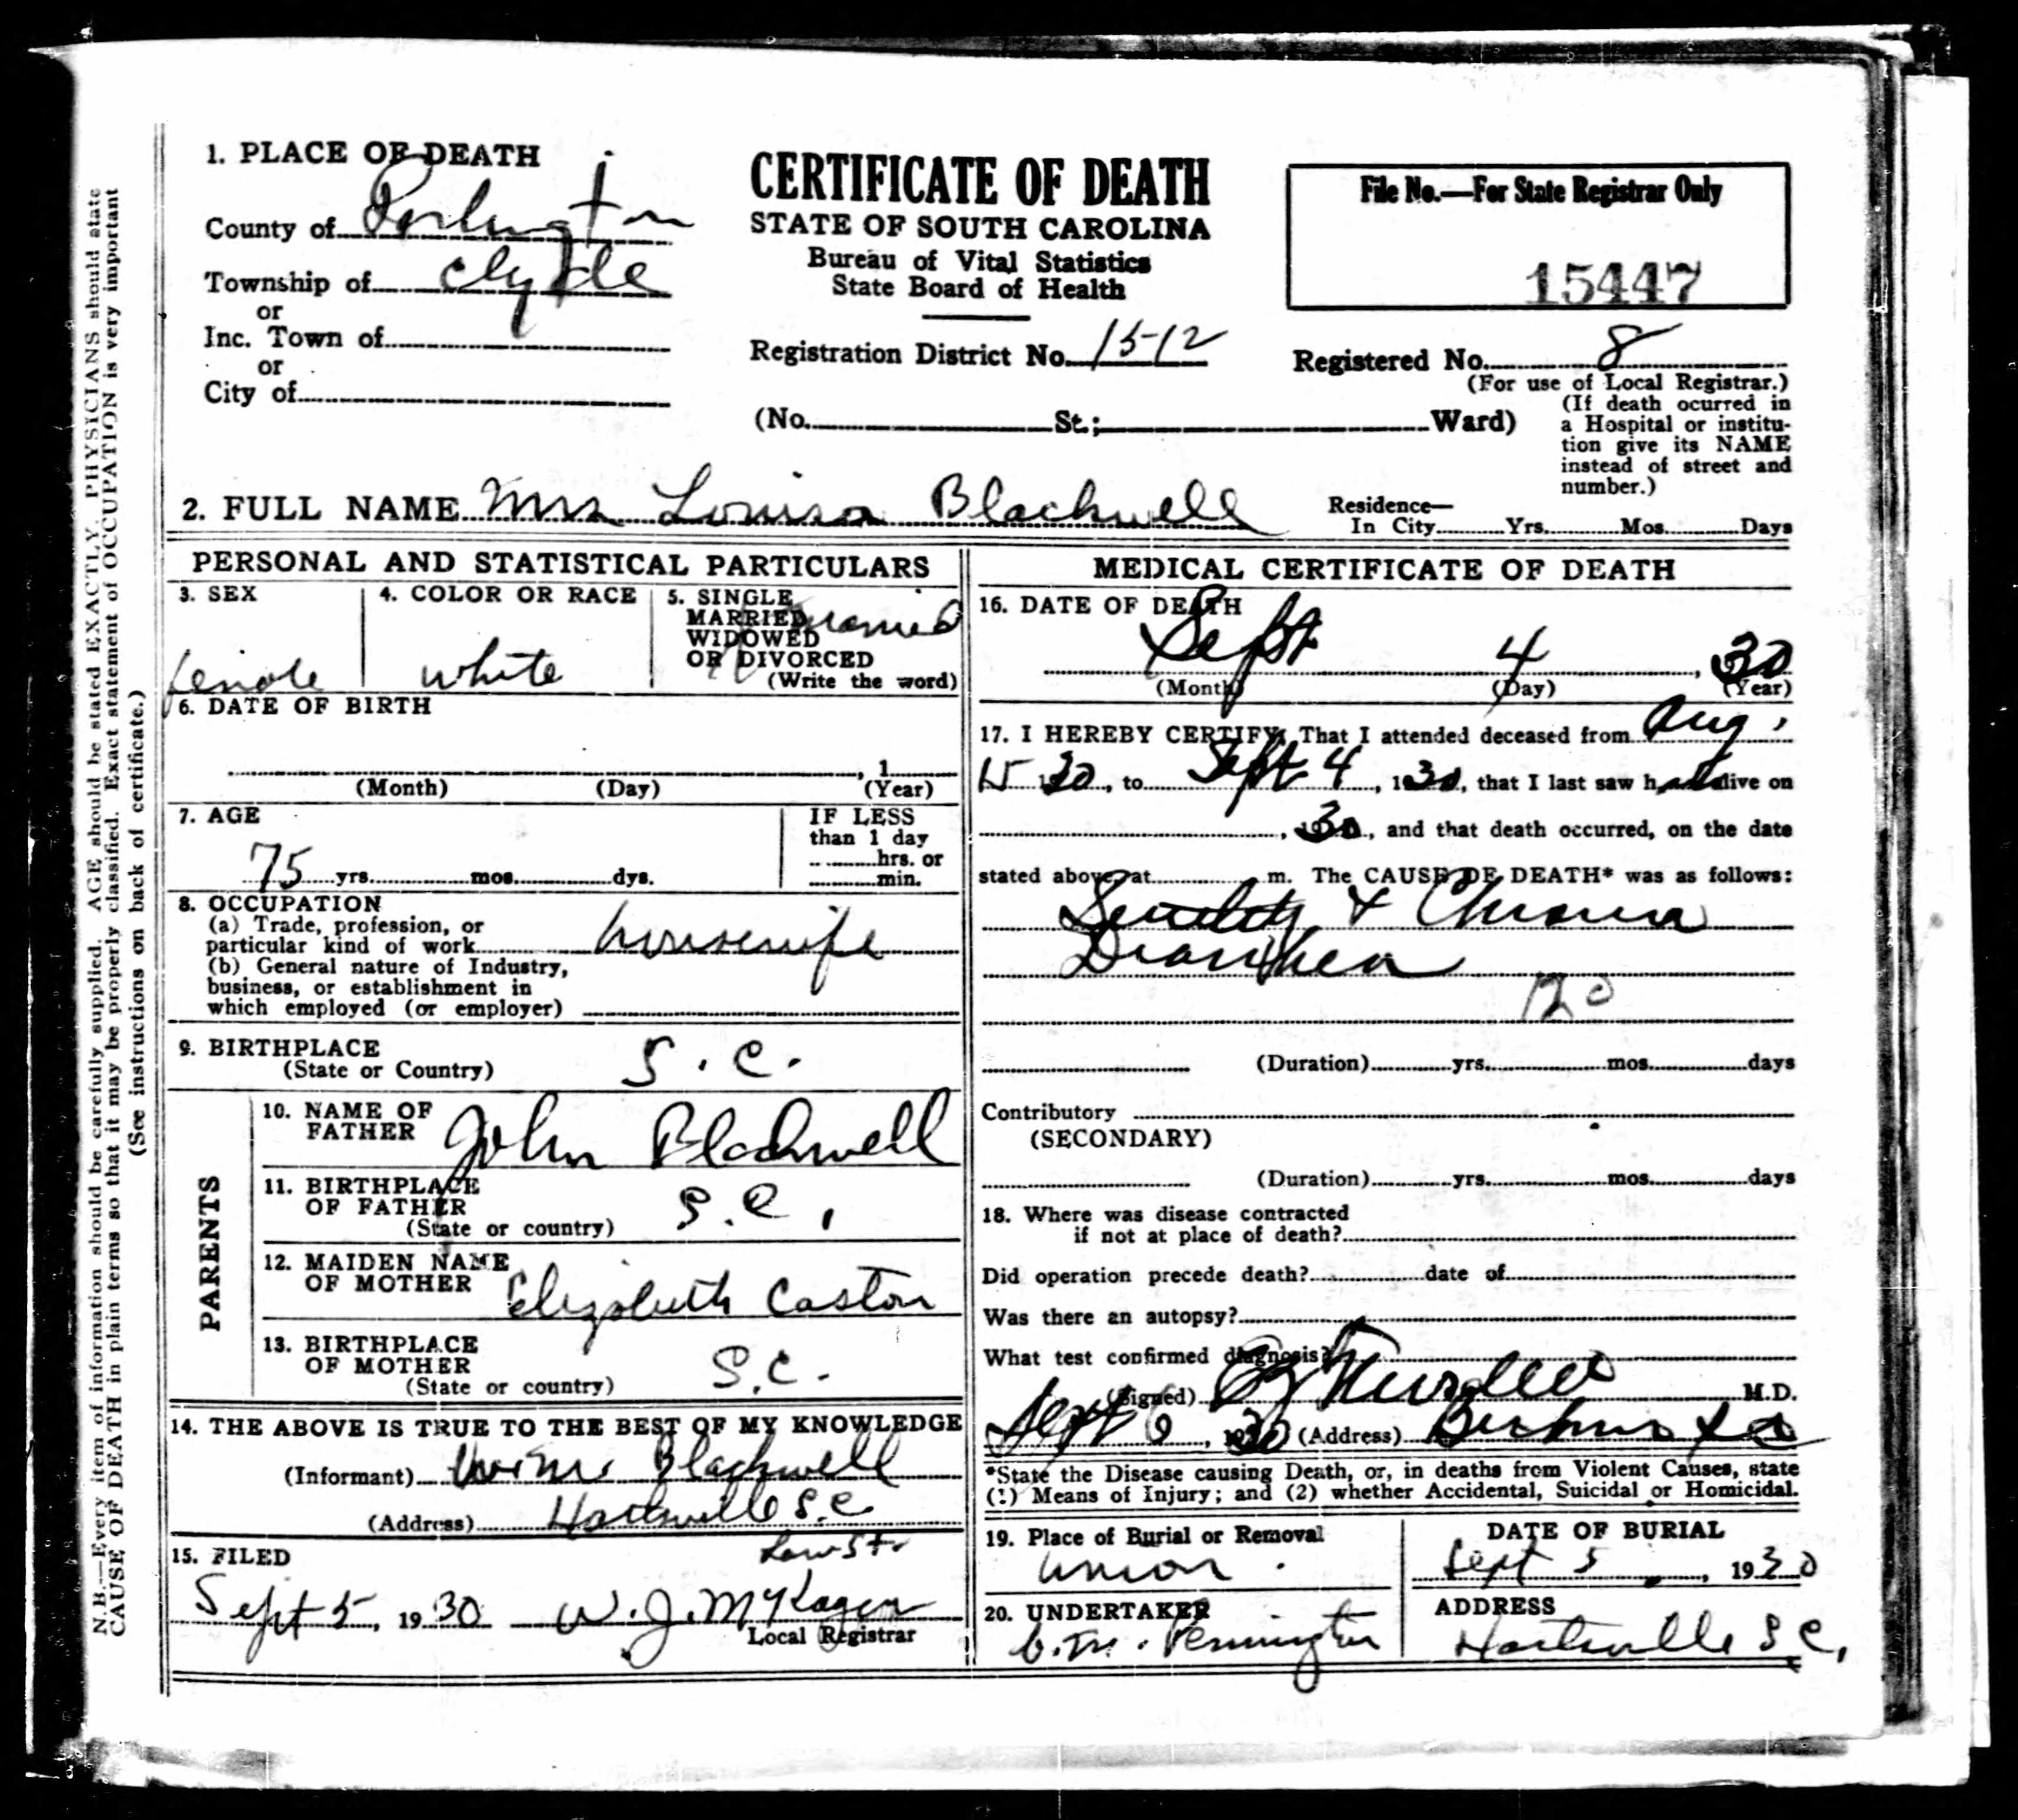 1. PLACE OF DEATH
County of Darlington
Township of Clyde
or
Inc. Town of
or
City of
CERTIFICATE OF DEATH
STATE OF SOUTH CAROLINA
Bureau of Vital Statistics
State Board of Health
Registration District No. 1512
File No.—For State Registrar Only
15447
Registered No. 8
(For use of Local Registrar.)
(No. St.; Ward)
(If death ocurred in
a Hospital or institu-
tion give its NAME
instead of street and
number.)
2. FULL NAME Mrs Louisa Blackwell
Residence—
In City Yrs. Mos. Days
PERSONAL AND STATISTICAL PARTICULARS
3. SEX
female
4. COLOR OR RACE
white
5. SINGLE
MARRIED married
WIDOWED
OR DIVORCED
(Write the word)
6. DATE OF BIRTH
, 1
(Month) (Day) (Year)
7. AGE
75 yrs. mos. dys.
IF LESS
than 1 day
hrs. or
min.
8. OCCUPATION
(a) Trade, profession, or
particular kind of work housewife
(b) General nature of Industry,
business, or establishment in
which employed (or employer)
9. BIRTHPLACE
(State or Country) S.C.
PARENTS
10. NAME OF
FATHER John Blackwell
11. BIRTHPLACE
OF FATHER
(State or country) S.C.
12. MAIDEN NAME
OF MOTHER Elizabeth Caston
13. BIRTHPLACE
OF MOTHER
(State or country) S.C.
14. THE ABOVE IS TRUE TO THE BEST OF MY KNOWLEDGE
(Informant) Blackwell
(Address) Hartsville S.C.
15. FILED
Sept 5, 1930 W.J. McKagen
Local Registrar
MEDICAL CERTIFICATE OF DEATH
16. DATE OF DEATH
Sept 4, 30
(Month) (Day) (Year)
17. I HEREBY CERTIFY, That I attended deceased from Aug.
15 30, to Sept 4, 1930, that I last saw h alive on
, 30, and that death occurred, on the date
stated above, at m. The CAUSE OF DEATH* was as follows:
Senility &
Diarrhea
120
(Duration) yrs. mos. days
Contributory
(SECONDARY)
(Duration) yrs. mos. days
18. Where was disease contracted
if not at place of death?
Did operation precede death? date of
Was there an autopsy?
What test confirmed diagnosis?
(Signed) M.D.
Sept 6, 1930 (Address)
*State the Disease causing Death, or, in deaths from Violent Causes, state
(1) Means of Injury; and (2) whether Accidental, Suicidal or Homicidal.
19. Place of Burial or Removal
Union
DATE OF BURIAL
Sept 5, 1930
20. UNDERTAKER
Pennington
ADDRESS
Hartsville S.C.
N.B.—Every item of information should be carefully supplied. AGE should be stated EXACTLY. PHYSICIANS should state
CAUSE OF DEATH in plain terms so that it may be properly classified. Exact statement of OCCUPATION is very important
(See instructions on back of certificate.)